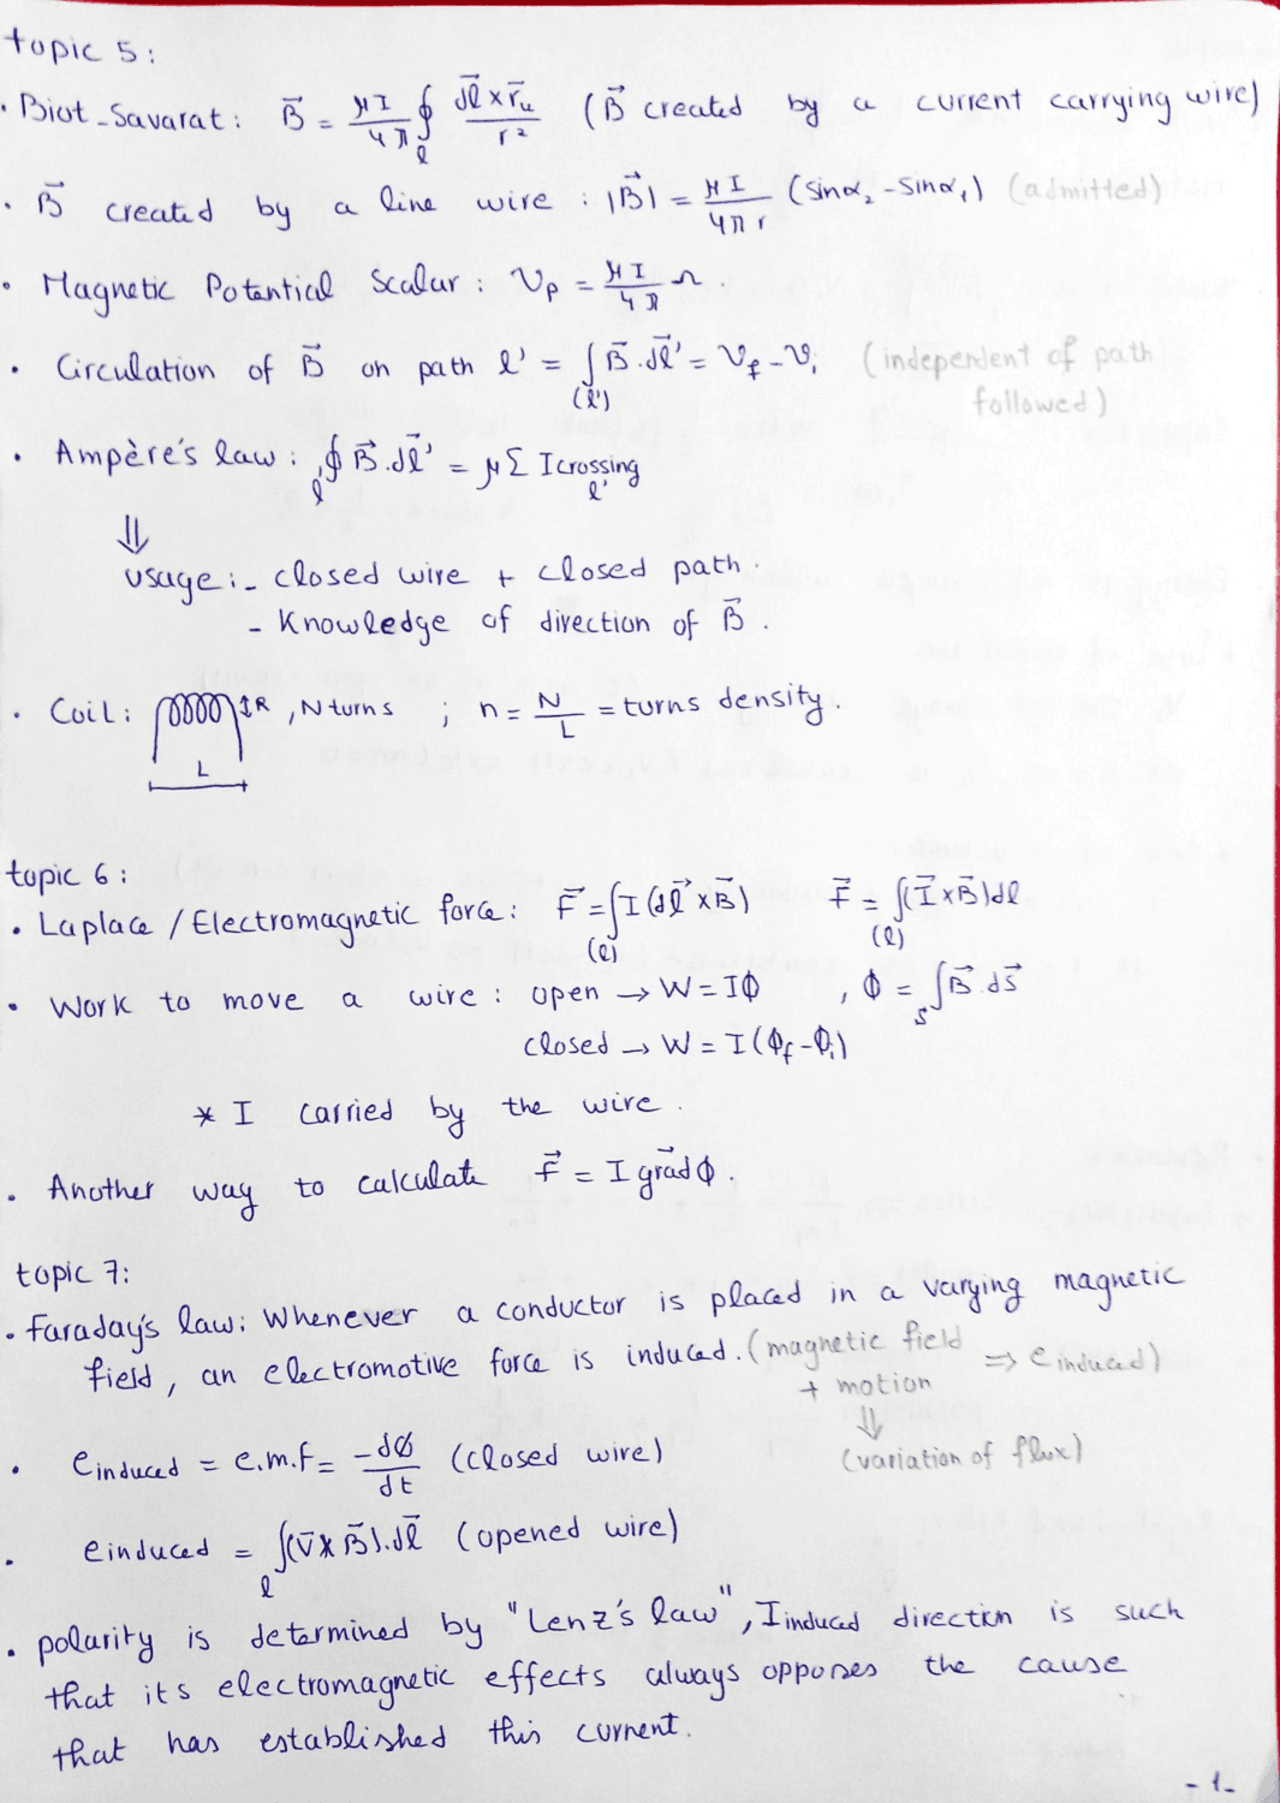 topic 5:
• Biot-Savarat: B⃗ = μI/4π ∮ₗ dl⃗ × r⃗ᵤ / r² (B⃗ created by a current carrying wire)
• B⃗ created by a line wire : |B⃗| = μI/4πr (sinα₂ - sinα₁) (admitted)
• Magnetic Potential Scalar : Vₚ = μI/4π Ω.
• Circulation of B⃗ on path l' = ∫(l') B⃗.dl⃗' = V_f - V_i (independent of path
followed)
• Ampère's law : ∮l' B⃗.dl⃗' = μ Σ I crossing l'
⇓
usage : - closed wire + closed path.
- Knowledge of direction of B⃗.
• Coil : R , N turns ; n = N/L = turns density.
L
topic 6 :
• Laplace / Electromagnetic force : F⃗ = ∫(l) I (dl⃗ × B⃗) F⃗ = ∫(l) (I⃗ × B⃗) dl
• Work to move a wire : open → W = Iϕ , ϕ = ∫S B⃗.dS⃗
closed → W = I(ϕ_f - ϕ_i)
* I carried by the wire.
• Another way to calculate F⃗ = I gra⃗d ϕ.
topic 7:
• Faraday's law: Whenever a conductor is placed in a varying magnetic
field, an electromotive force is induced. (magnetic field ⇒ e induced)
+ motion
⇓
• e induced = e.m.f = -dϕ/dt (closed wire) (variation of flux)
• e induced = ∫l (v⃗ × B⃗).dl⃗ (opened wire)
• polarity is determined by "Lenz's law", I induced direction is such
that its electromagnetic effects always opposes the cause
that has established this current.
- 1 -